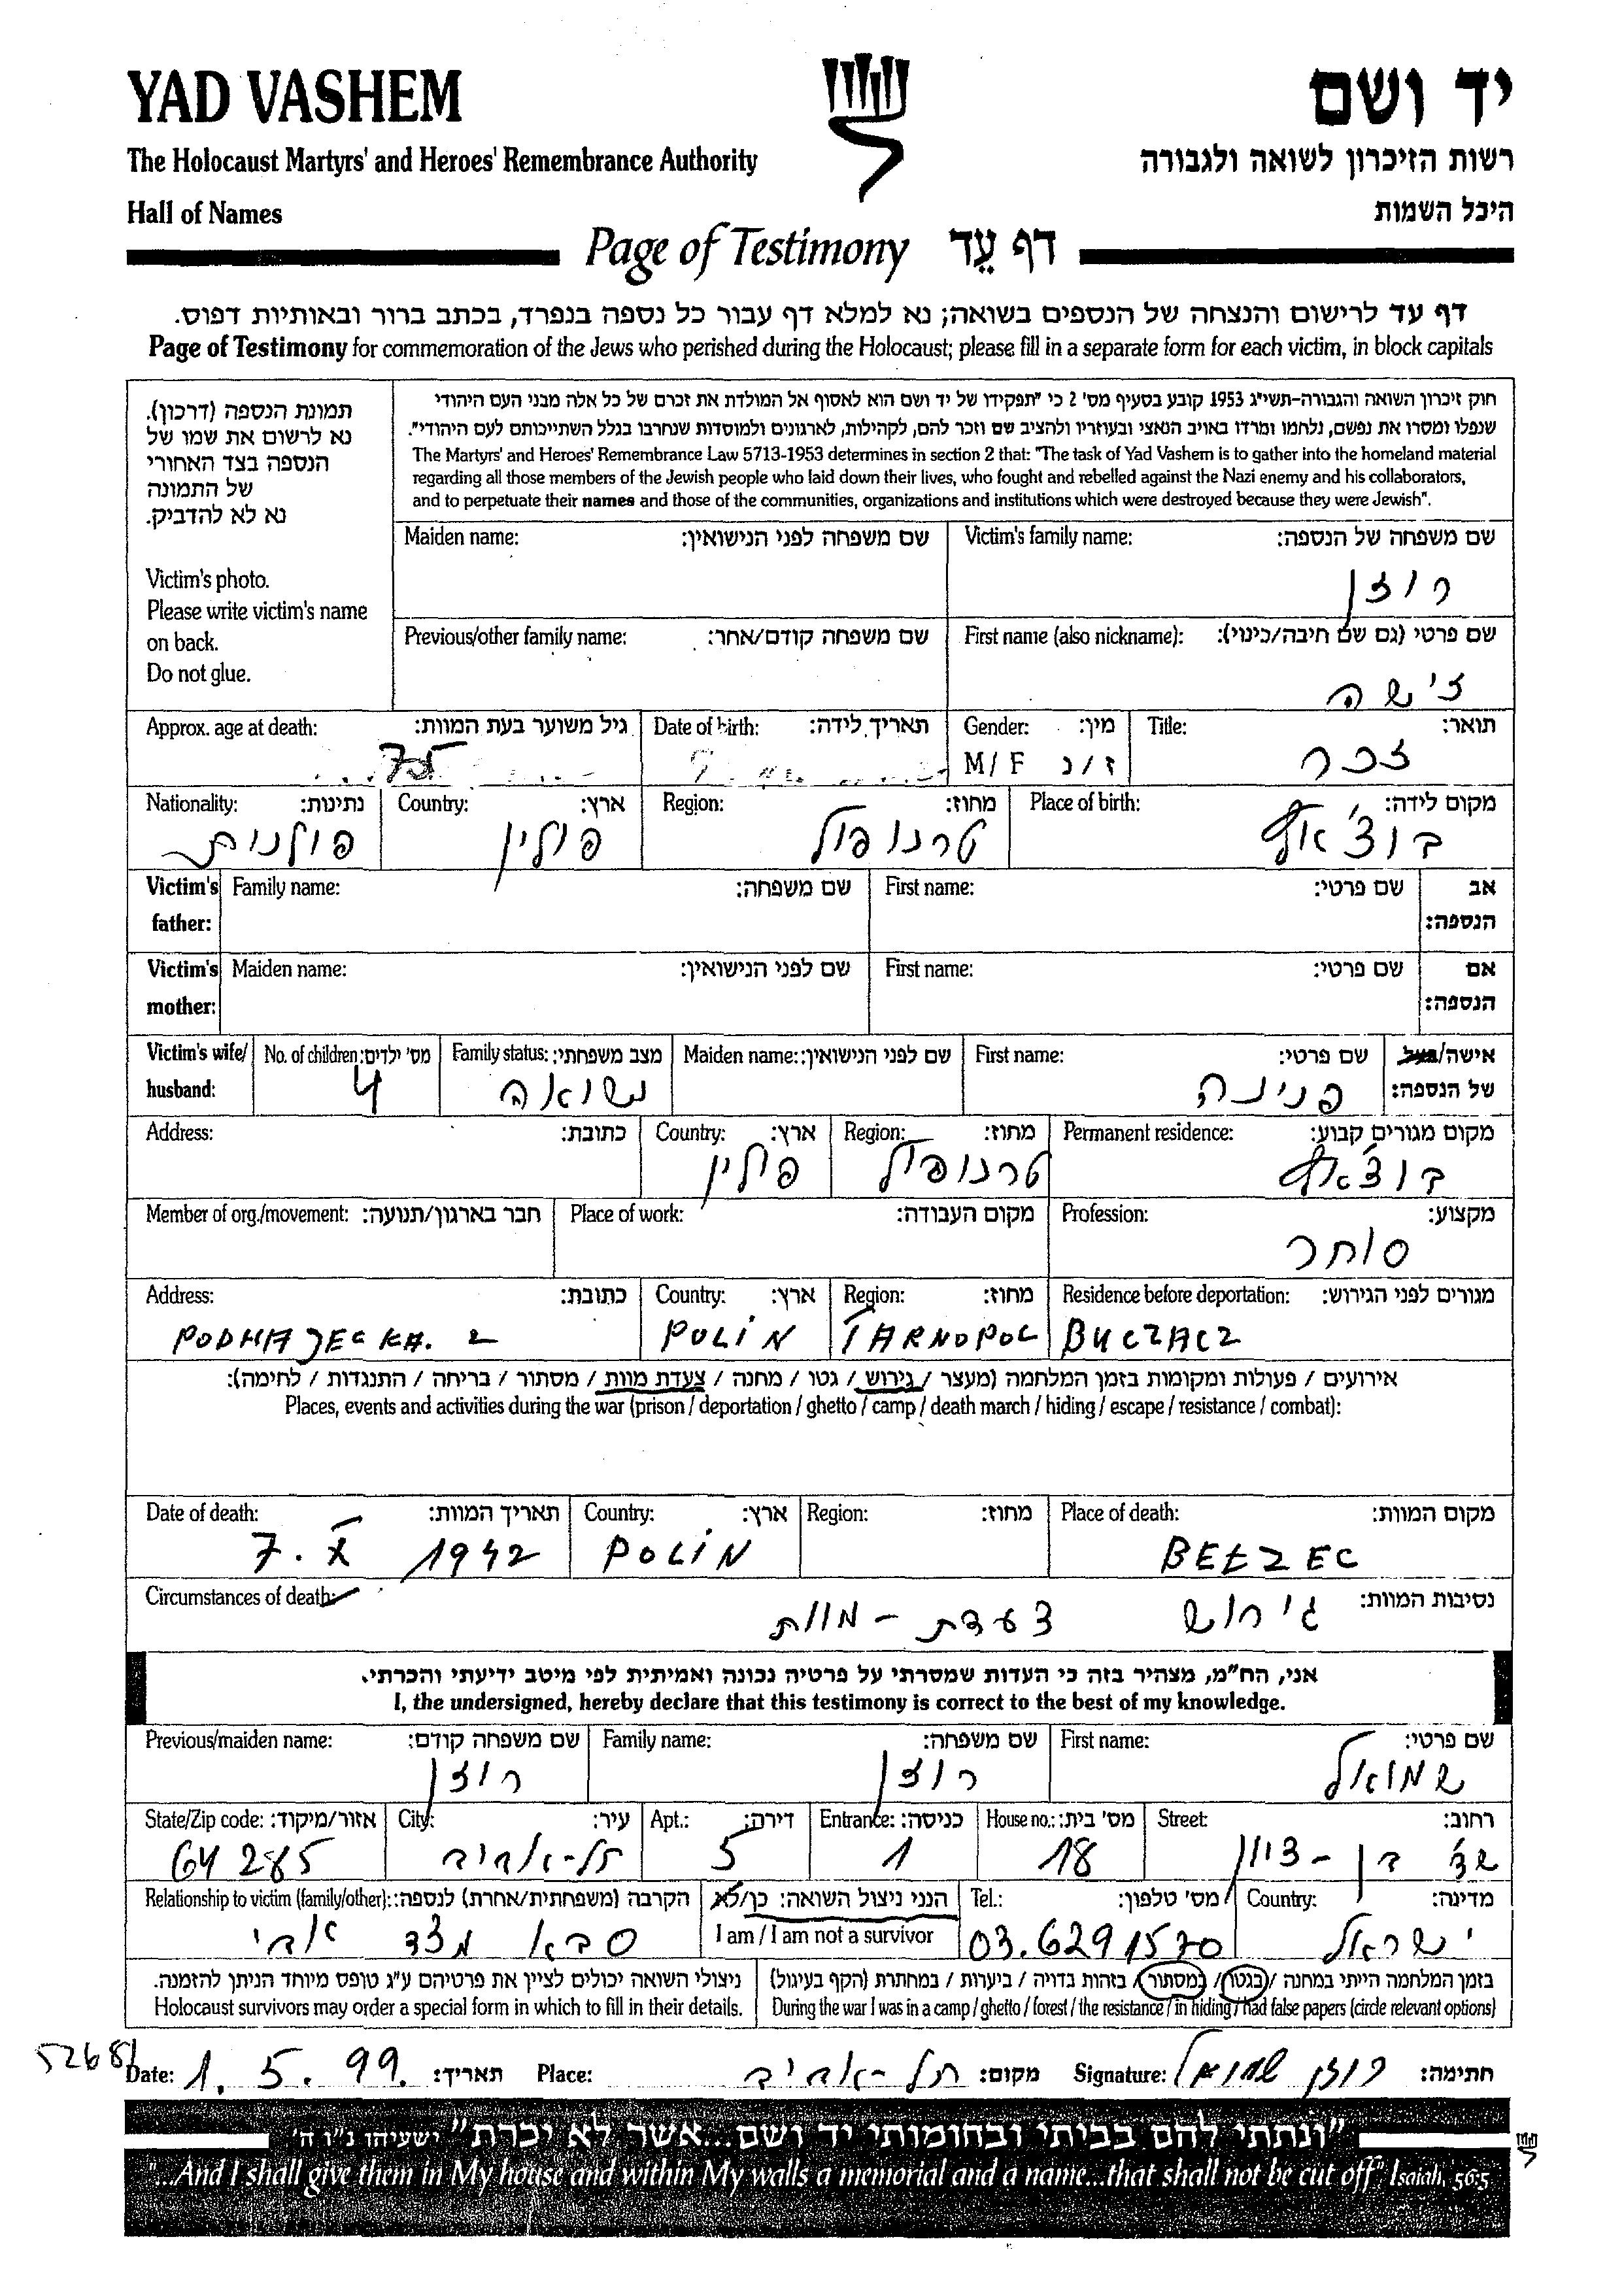 YAD VASHEM
יד ושם
The Holocaust Martyrs' and Heroes' Remembrance Authority
רשות הזיכרון לשואה ולגבורה
Hall of Names
היכל השמות
Page of Testimony דף עֵד
דף עד לרישום והנצחה של הנספים בשואה; נא למלא דף עבור כל נספה בנפרד, בכתב ברור ובאותיות דפוס.
Page of Testimony for commemoration of the Jews who perished during the Holocaust; please fill in a separate form for each victim, in block capitals
תמונת הנספה (דרכון).
נא לרשום את שמו של
הנספה בצד האחורי
של התמונה
נא לא להדביק.
Victim's photo.
Please write victim's name
on back.
Do not glue.
חוק זיכרון השואה והגבורה-תשי"ג 1953 קובע בסעיף מס' 2 כי "תפקידו של יד ושם הוא לאסוף אל המולדת את זכרם של כל אלה מבני העם היהודי
שנפלו ומסרו את נפשם, נלחמו ומרדו באויב הנאצי ובעוזריו ולהציב שם וזכר להם, לקהילות, לארגונים ולמוסדות שנחרבו בגלל השתייכותם לעם היהודי".
The Martyrs' and Heroes' Remembrance Law 5713-1953 determines in section 2 that: "The task of Yad Vashem is to gather into the homeland material
regarding all those members of the Jewish people who laid down their lives, who fought and rebelled against the Nazi enemy and his collaborators,
and to perpetuate their names and those of the communities, organizations and institutions which were destroyed because they were Jewish".
Maiden name: שם משפחה לפני הנישואין: Victim's family name: שם משפחה של הנספה:
רוזן
Previous/other family name: שם משפחה קודם/אחר: First name (also nickname): שם פרטי (גם שם חיבה/כינוי):
זישה
Approx. age at death: גיל משוער בעת המוות: Date of birth: תאריך לידה: Gender: מין: Title: תואר:
75 M/ F ז/נ זכר
Nationality: נתינות: Country: ארץ: Region: מחוז: Place of birth: מקום לידה:
פולנית פולין טרנופול בוצ'אץ'
Victim's father: Family name: שם משפחה: First name: שם פרטי: אב הנספה:
Victim's mother: Maiden name: שם לפני הנישואין: First name: שם פרטי: אם הנספה:
Victim's wife/ husband: No. of children: מס' ילדים: Family status: מצב משפחתי: Maiden name: שם לפני הנישואין: First name: שם פרטי: אישה/בעל של הנספה:
4 נשואה פנינה
Address: כתובת: Country: ארץ: Region: מחוז: Permanent residence: מקום מגורים קבוע:
פולין טרנופול בוצ'אץ'
Member of org./movement: חבר בארגון/תנועה: Place of work: מקום העבודה: Profession: מקצוע:
סוחר
Address: כתובת: Country: ארץ: Region: מחוז: Residence before deportation: מגורים לפני הגירוש:
PODHAJECKA. 2 POLIN TARNOPOL BUCZACZ
אירועים / פעולות ומקומות בזמן המלחמה (מעצר / גירוש / גטו / מחנה / צעדת מוות / מסתור / בריחה / התנגדות / לחימה):
Places, events and activities during the war (prison / deportation / ghetto / camp / death march / hiding / escape / resistance / combat):
Date of death: תאריך המוות: Country: ארץ: Region: מחוז: Place of death: מקום המוות:
7. X 1942 POLIN BEŁZEC
Circumstances of death: נסיבות המוות:
גירוש צעדת - מוות
אני, הח"מ, מצהיר בזה כי העדות שמסרתי על פרטיה נכונה ואמיתית לפי מיטב ידיעתי והכרתי.
I, the undersigned, hereby declare that this testimony is correct to the best of my knowledge.
Previous/maiden name: שם משפחה קודם: Family name: שם משפחה: First name: שם פרטי:
רוזן רוזן שמואל
State/Zip code: אזור/מיקוד: City: עיר: Apt.: דירה: Entrance: כניסה: House no.: מס' בית: Street: רחוב:
64285 תל-אביב 5 1 18 בן - ציון
Relationship to victim (family/other): הקרבה (משפחתית/אחרת) לנספה: הנני ניצול השואה: כן/לא Tel.: מס' טלפון: Country: מדינה:
סבא מצד אבי I am / I am not a survivor 03.6291570 ישראל
ניצולי השואה יכולים לציין את פרטיהם ע"ג טופס מיוחד הניתן להזמנה. בזמן המלחמה הייתי במחנה / בגטו / במסתור / בזהות בדויה / ביערות / במחתרת (הקף בעיגול)
Holocaust survivors may order a special form in which to fill in their details. During the war I was in a camp / ghetto / forest / the resistance / in hiding / had false papers (circle relevant options)
52681
Date: 1. 5. 99. תאריך: Place: תל-אביב מקום: Signature: רוזן שמואל חתימה:
"ונתתי להם בביתי ובחומותי יד ושם...אשר לא יכרת" ישעיהו נ"ו ה'
"...And I shall give them in My house and within My walls a memorial and a name...that shall not be cut off" Isaiah, 56:5